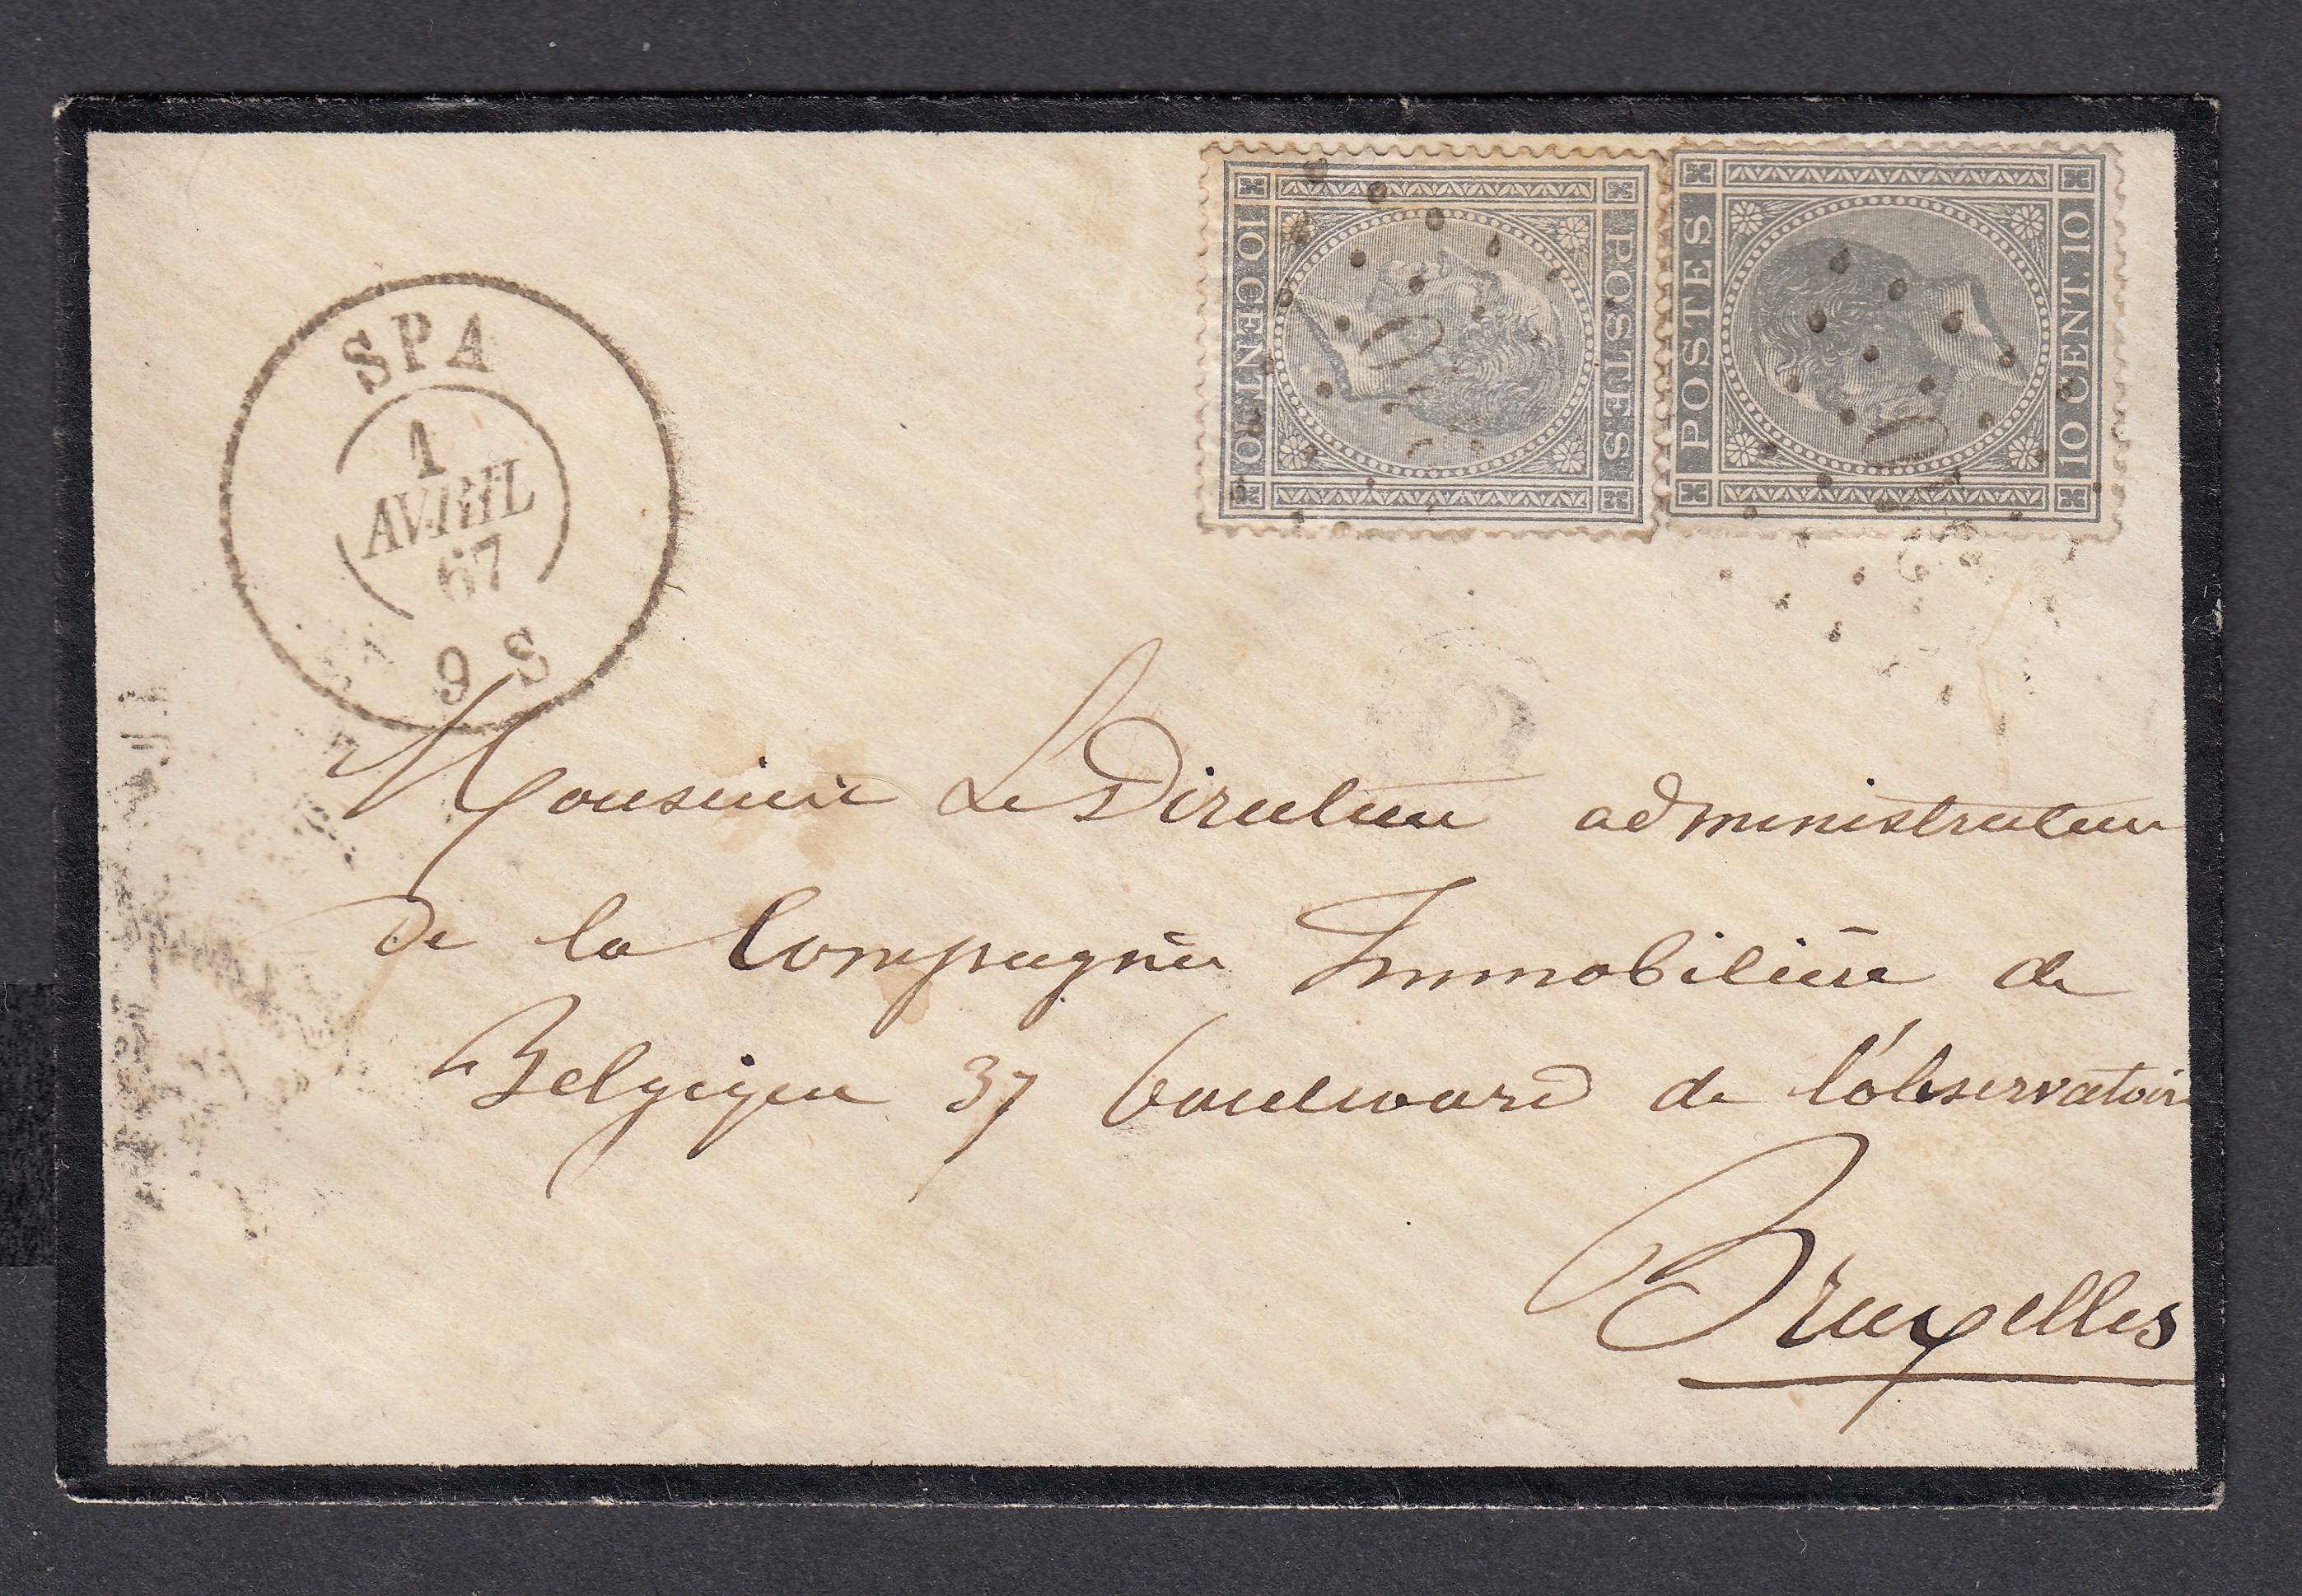 10 CENT. 10
POSTES
POSTES
10 CENT. 10
SPA
1
AVRIL
67
9 S
Monsieur Le Directeur administrateur
de la Compagnie Immobilière de
Belgique 37 boulevard de l'observatoire
Bruxelles